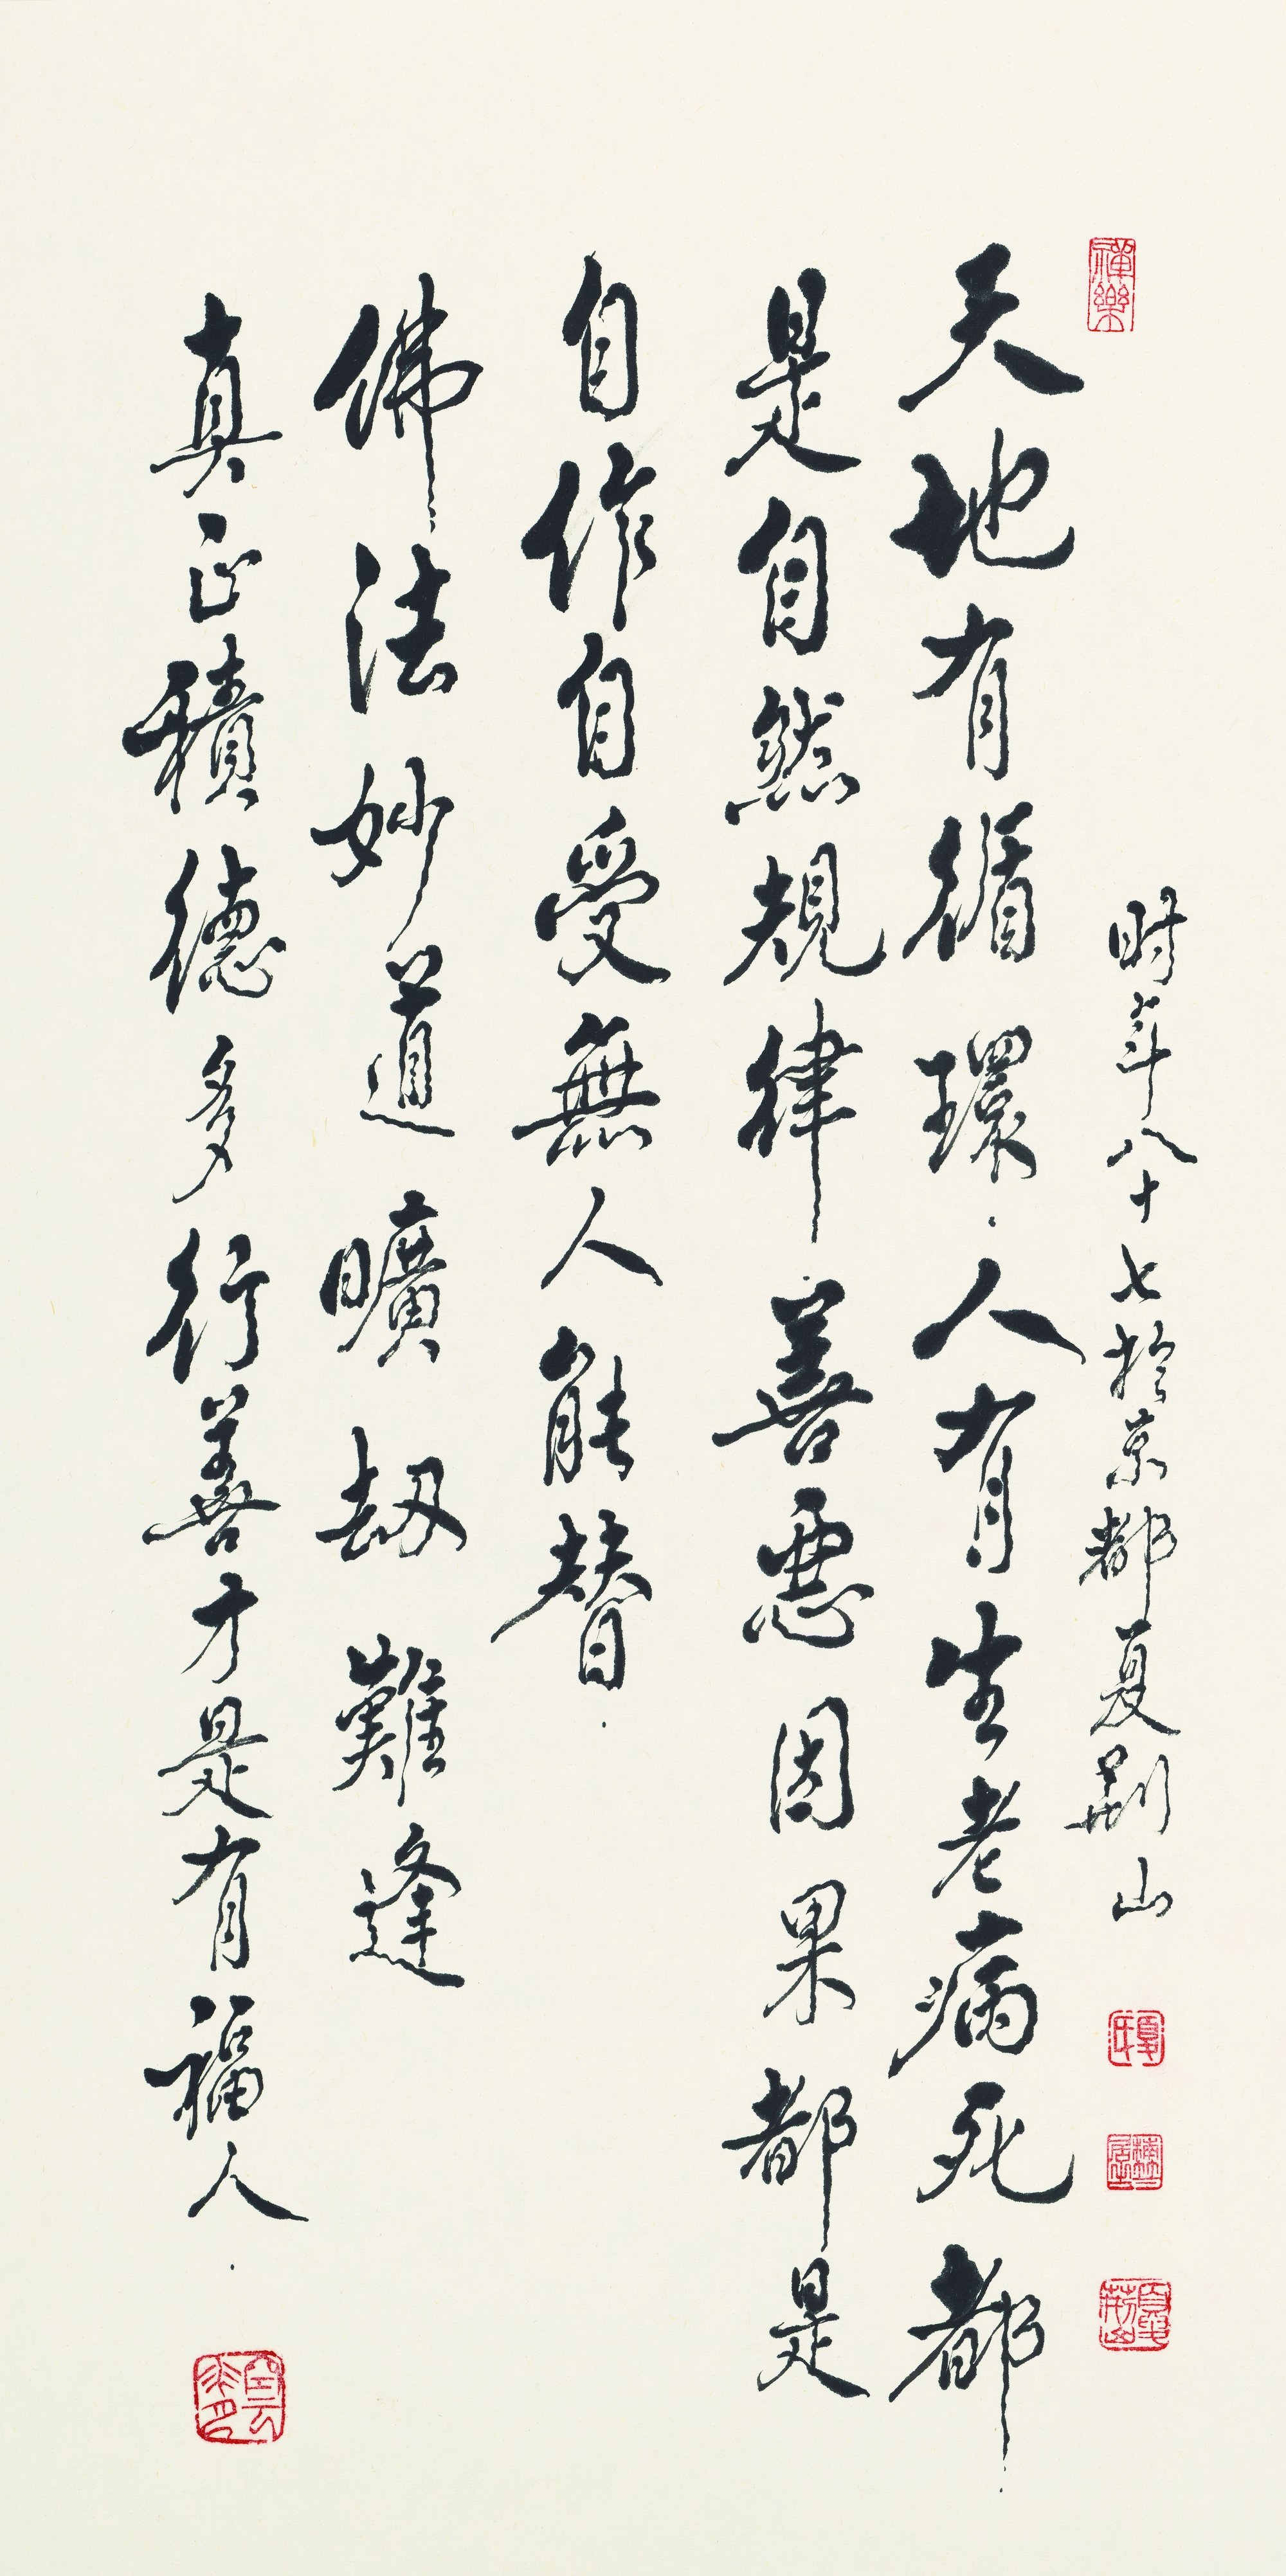 禪樂
天地有循環．人有生老病死都
是自然規律．善惡因果都是
自作自受無人能替．
佛法妙道曠劫難逢
真正積德多行善才是有福人．
时年八十七於京都夏荆山
夏氏
夏荆山